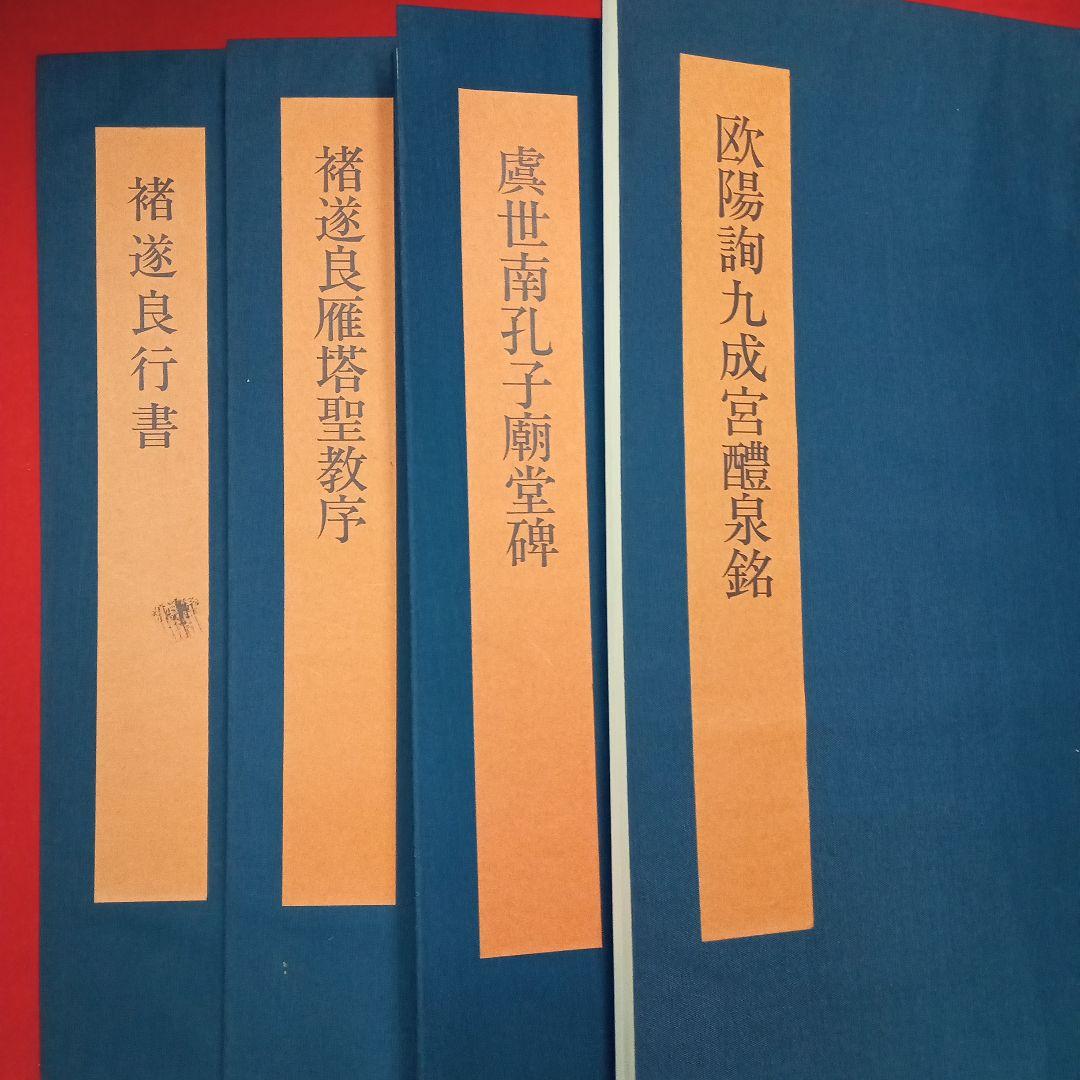 欧陽詢九成宮醴泉銘
虞世南孔子廟堂碑
褚遂良雁塔聖教序
褚遂良行書